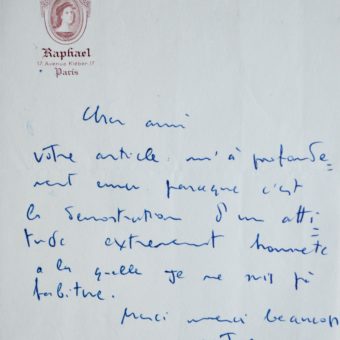 Raphael
17, Avenue Kléber 17
Paris
Cher ami
votre article m'à profonde=
ment emu parceque c'est
la demostration d'un atti=
tude extremement honnete
a la quelle je ne suis pà
habitué.
Merci merci beaucoup